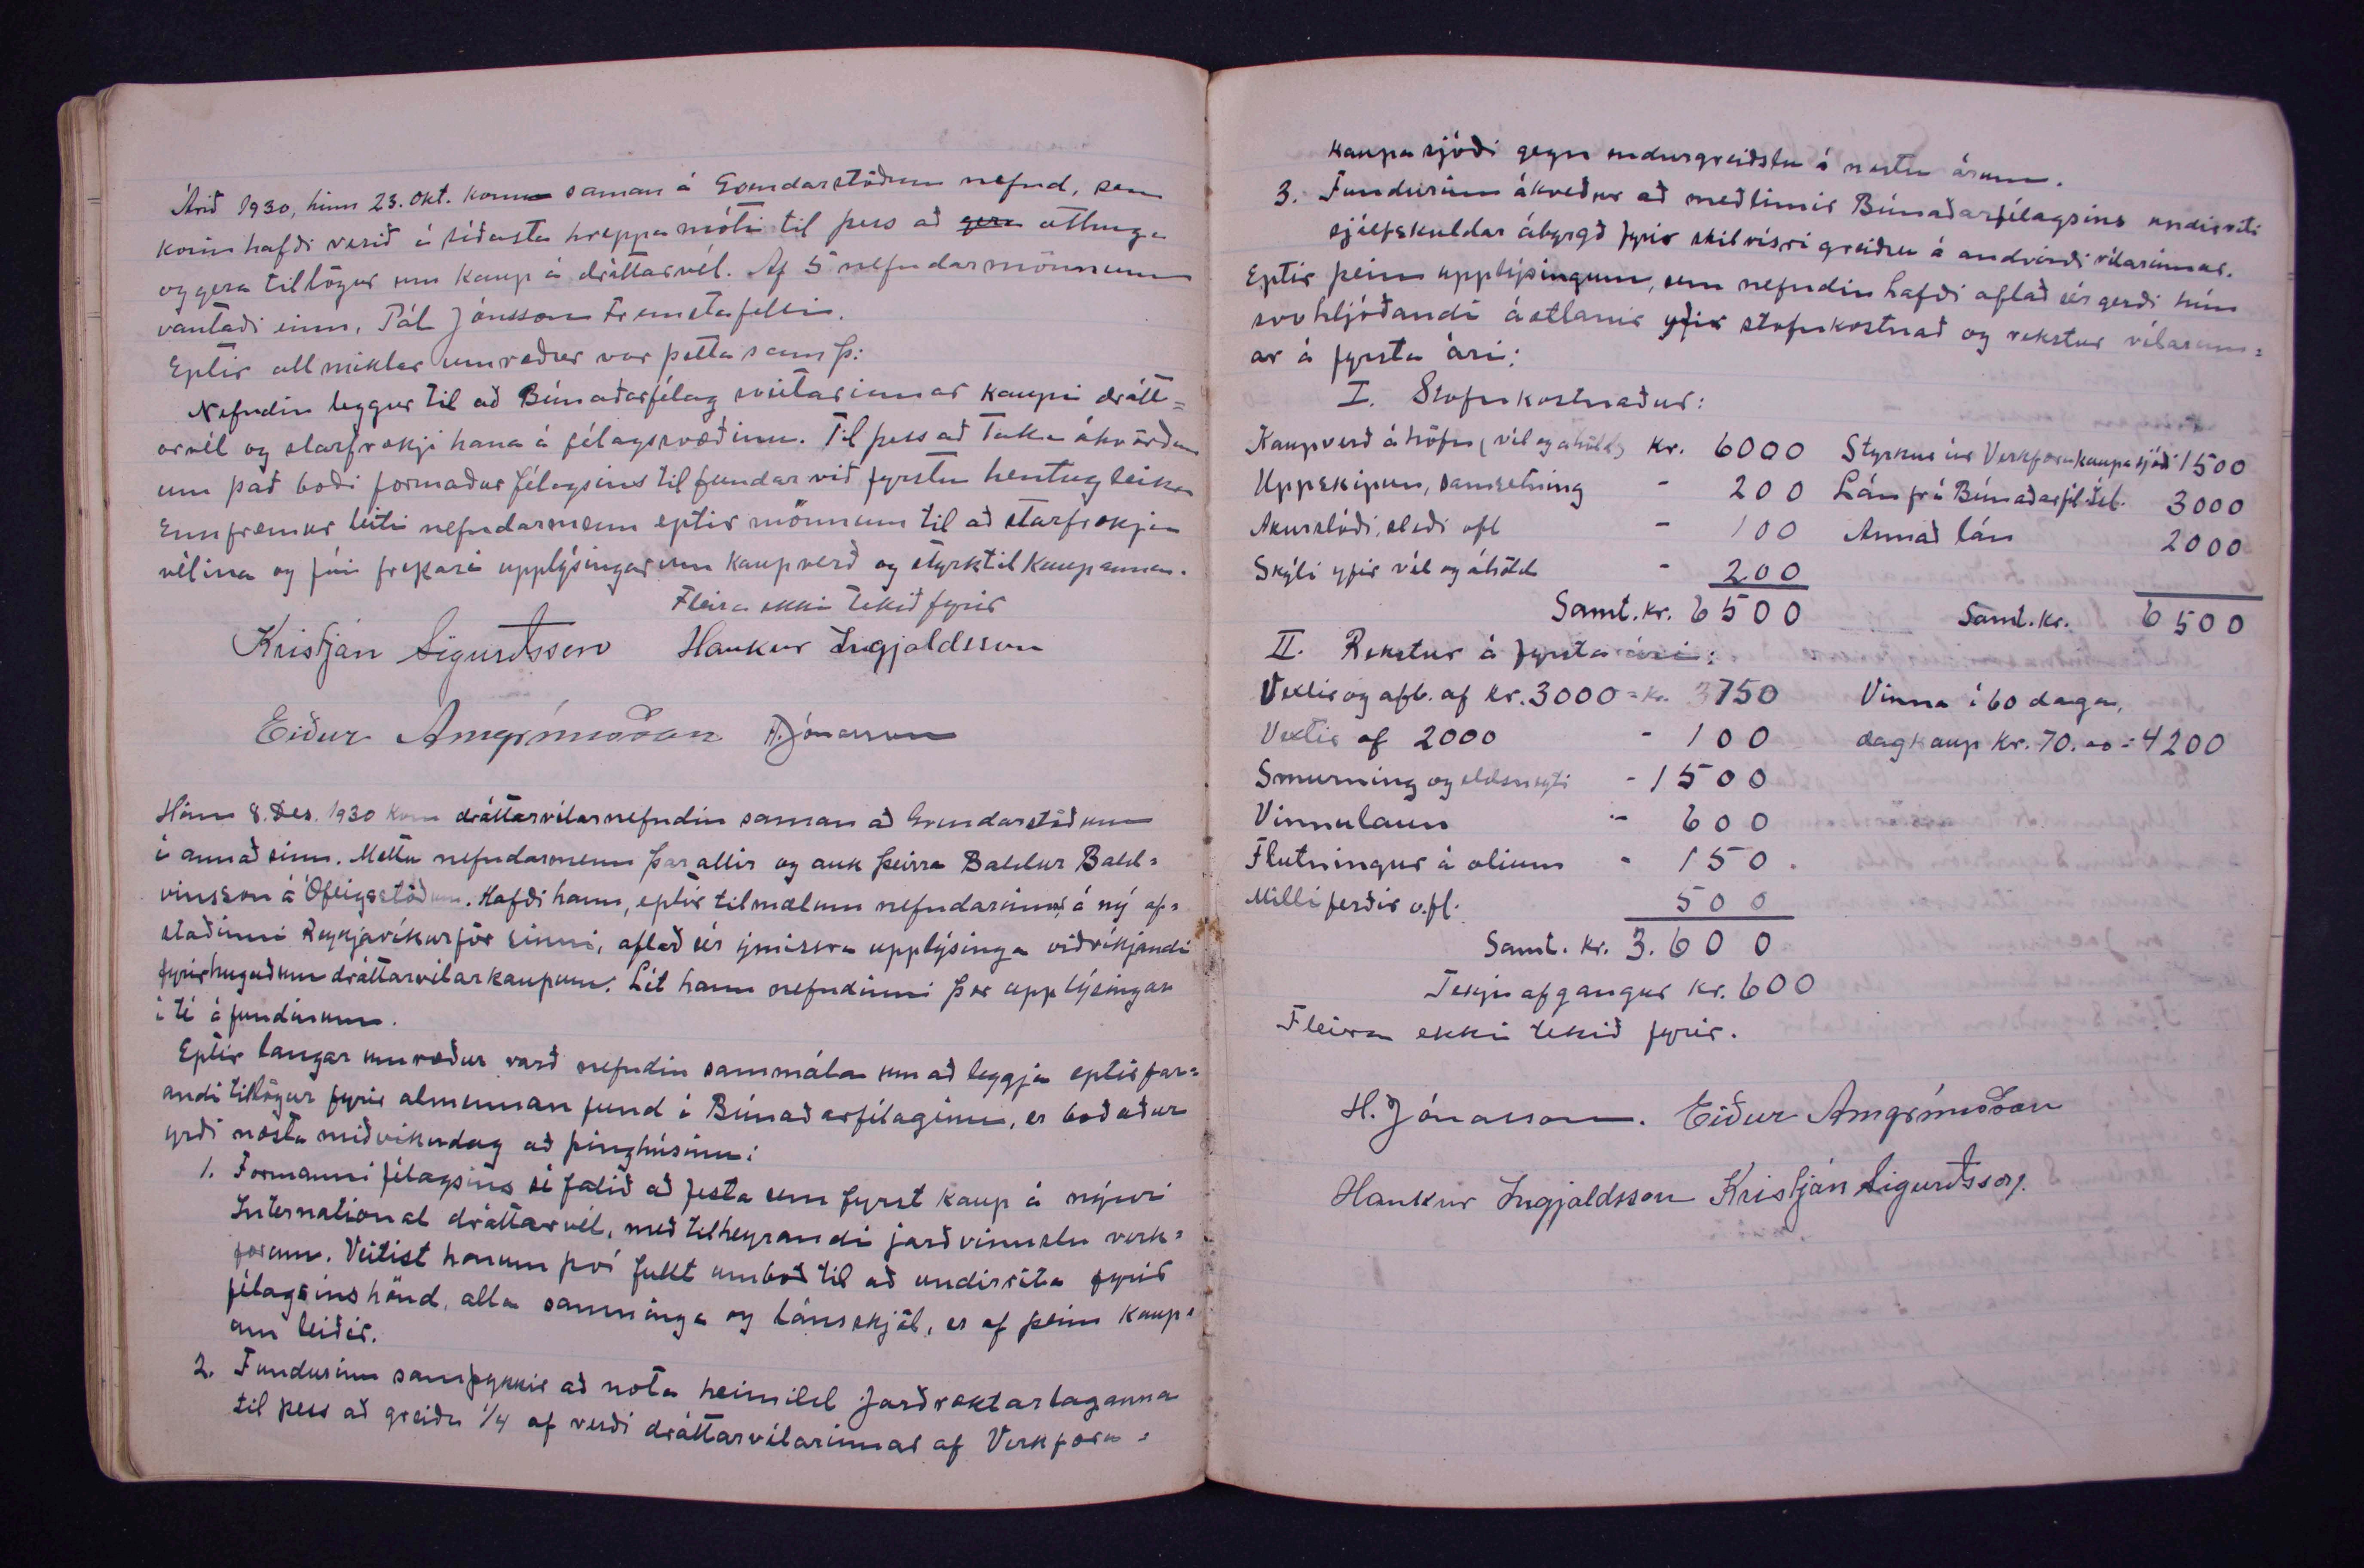 Árið 1930, hinn 23. okt. kom saman á Grendarstöðum nefnd, sem
kosin hafði verið á síðasta hreppamóti til þess að gera athuga
og gera tillögur um kaup á dráttarvél. Af 5 nefndarmönnum
vantaði einn, Pál Jónsson Fremstafelli.
Eptir allmiklar umræður var þetta samþ:
Nefndin leggur til að Búnaðarfélag sveitarinnar kaupi drátt=
arvél og starfrækji hana á félagssvæðinu. Til þess að taka ákvörðun
um það boði formaður félagsins til fundar við fyrstu hentugleika
Ennfremur leiti nefndarmenn eptir mönnum til að starfrækja
vélina og fái frekari upplýsingar um kaupverð og styrk til kaupanna.
Fleira ekki tekið fyrir
Kristján Sigurðsson Haukur Ingjaldsson
Eiður Arngrímsson H. Jónasson
Hinn 8. Des. 1930 kom dráttarvélarnefndin saman að Grendarstöðum
í annað sinn. Mættu nefndarmenn þar allir og auk þeirra Baldur Bald=
vinsson á Ófeigsstöðum. Hafði hann, eptir tilmælum nefndarinnar, á ný af=
staðinni Reykjavíkurför sinni, aflað sér ýmissra upplýsinga viðvíkjandi
fyrirhuguðum dráttarvélarkaupum. Lét hann nefndinni þær upplýsingar
í té á fundinum.
Eptir langar umræður varð nefndin sammála um að leggja eptirfar=
andi tillögur fyrir almennan fund í Búnaðarfélaginu, er boðaður
yrði næsta miðvikudag að þinghúsinu:
1. Formanni félagsins sé falið að festa sem fyrst kaup á nýrri
International dráttarvél, með tilheyrandi jarðvinnslu verk=
færum. Veitist honum því fullt umboð til að undirrita fyrir
félagsins hönd, alla samninga og lánsskjöl, er af þeim kaup=
um leiðir.
2. Fundurinn samþykkir að nota heimild Jarðræktarlaganna
til þess að greiða 1/4 af verði dráttarvélarinnar af Verkfæra=
kaupasjóði gegn endurgreiðslu á næstu árum.
3. Fundurinn ákveður að meðlimir Búnaðarfélagsins undirriti
sjálfskuldar ábyrgð fyrir skilvísri greiðslu á andvirði vélarinnar.
Eptir þeim upplýsingum, sem nefndin hafði aflað sér gerði hún
svohljóðandi áætlanir yfir stofnkostnað og rekstur vélarinn=
ar á fyrsta ári:
I. Stofnkostnaður:
Kaupverð á höfn (vél og áhöld) kr. 6000 Styrkur úr Verkfærakaupasjóði 1500
Uppskipun, samsetning - 200 Lán frá Búnaðarfél. 3000
Akurslóði, sleði ofl - 100 Annað lán 2000
Skýli yfir vél og áhöld - 200
Samt. kr. 6500 Samt. kr. 6500
II. Rekstur á fyrsta ári:
Vextir og afb. af kr. 3000 = kr. 750 Vinna í 60 daga,
Vextir af 2000 - 100 dagkaup kr. 70.00 = 4200
Smurning og eldsneyti - 1500
Vinnulaun - 600
Flutningur á olium - 150.
Milliferðir o.fl. 500
Samt. kr. 3.600
Tekjuafgangur kr. 600
Fleira ekki tekið fyrir.
H. Jónasson. Eiður Arngrímsson
Haukur Ingjaldsson Kristján Sigurðsson.